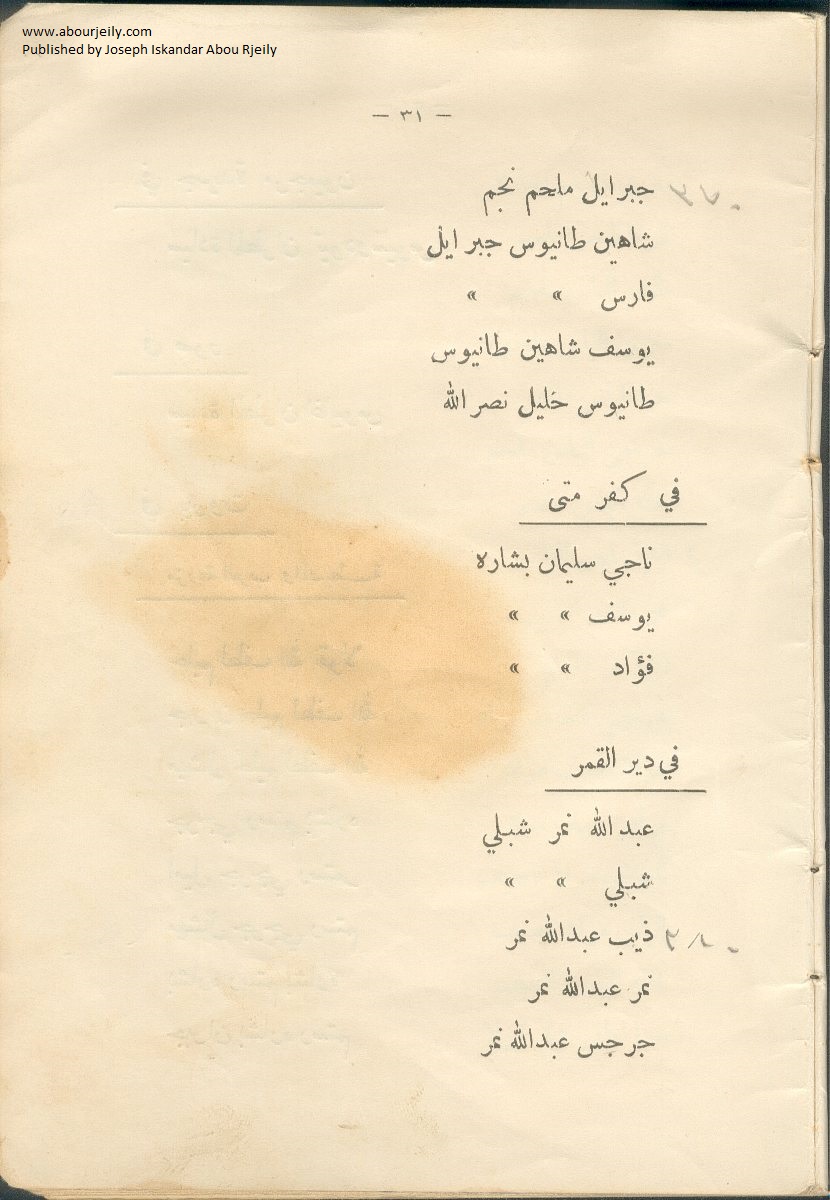 www.abourjeily.com
Published by Joseph Iskandar Abou Rjeily
— ٣١ —
جبرايل ملحم نجم
شاهين طانيوس جبرايل
فارس » »
يوسف شاهين طانيوس
طانيوس خليل نصرالله
في كفر متى
ناجي سليمان بشاره
يوسف » »
فؤاد » »
في دير القمر
عبدالله نمر شبلي
شبلي » »
ذيب عبدالله نمر
نمر عبدالله نمر
جرجس عبدالله نمر